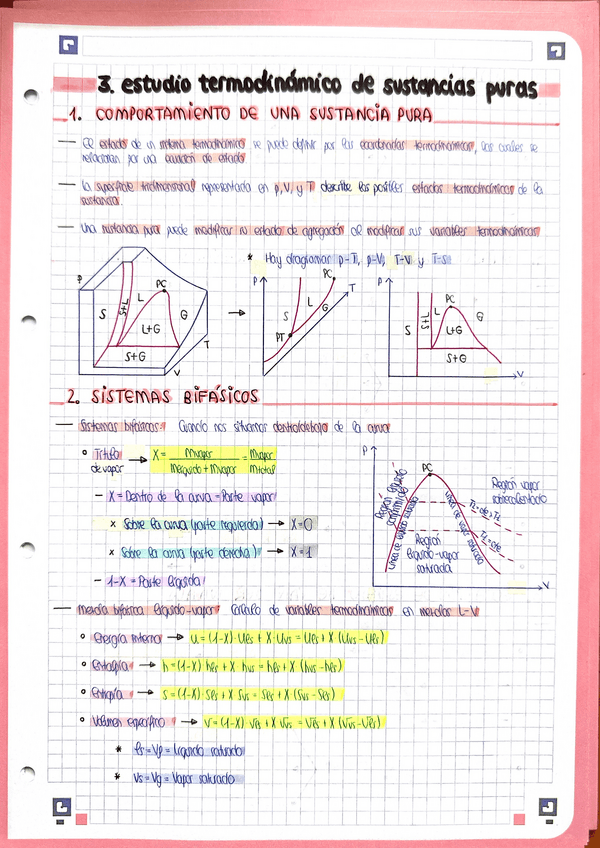 3. estudio termodinámico de sustancias puras
1. COMPORTAMIENTO DE UNA SUSTANCIA PURA
— El estado de un sistema termodinámico se puede definir por las coordenadas termodinámicas, las cuales se
relacionan por una ecuación de estado
— La superficie tridimensional representada en p, V, y T describe los posibles estados termodinámicos de la
sustancia.
— Una sustancia pura puede modificar su estado de agregación al modificar sus variables termodinámicas
* Hay diagramas p-T, p-V, T-V y T-s
P
S
S+L
L
PC
L+G
G
S+G
T
V
→
P
PC
T
S
L
G
PT
P
S
S+L
L
PC
G
L+G
S+G
V
2. SISTEMAS BIFÁSICOS
— Sistemas bifásicos: Cuando nos situamos dentro/debajo de la curva
° Título de vapor → X = mvapor / mlíquido + mvapor = mvapor / mtotal
– X = Dentro de la curva = Parte vapor
x Sobre la curva (parte izquierda) → X=0
x Sobre la curva (parte derecha) → X=1
– 1-X = Parte líquida
P
PC
Región líquido
Línea de líquido saturado
Región
líquido-vapor
saturada
Línea de vapor saturado
Región vapor
sobrecalentado
V
— Mezcla bifásica líquido-vapor: Cálculo de variables termodinámicas en mezclas L-V
° Energía interna → u = (1-X) · uls + X · uvs = uls + X (uvs - uls)
° Entalpía → h = (1-X) hls + X hvs = hls + X (hvs - hls)
° Entropía → s = (1-X) · sls + X svs = sls + X (svs - sls)
° Volumen específico → v = (1-X) vls + X vvs = vls + X (vvs - vls)
* ls = Vf = Líquido saturado
* vs = Vg = Vapor saturado